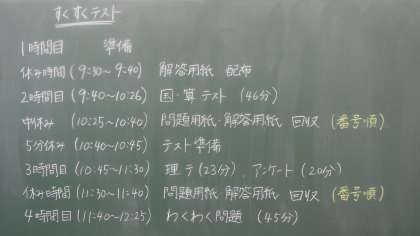 すくすくテスト
1時間目 準備
休み時間 (9:30~9:40) 解答用紙 配布
2時間目 (9:40~10:26) 国・算テスト (46分)
中休み (10:25~10:40) 問題用紙・解答用紙 回収 (番号順)
5分休み (10:40~10:45) テスト準備
3時間目 (10:45~11:30) 理テ(23分)、アンケート(20分)
休み時間 (11:30~11:40) 問題用紙 解答用紙 回収 (番号順)
4時間目 (11:40~12:25) わくわく問題 (45分)